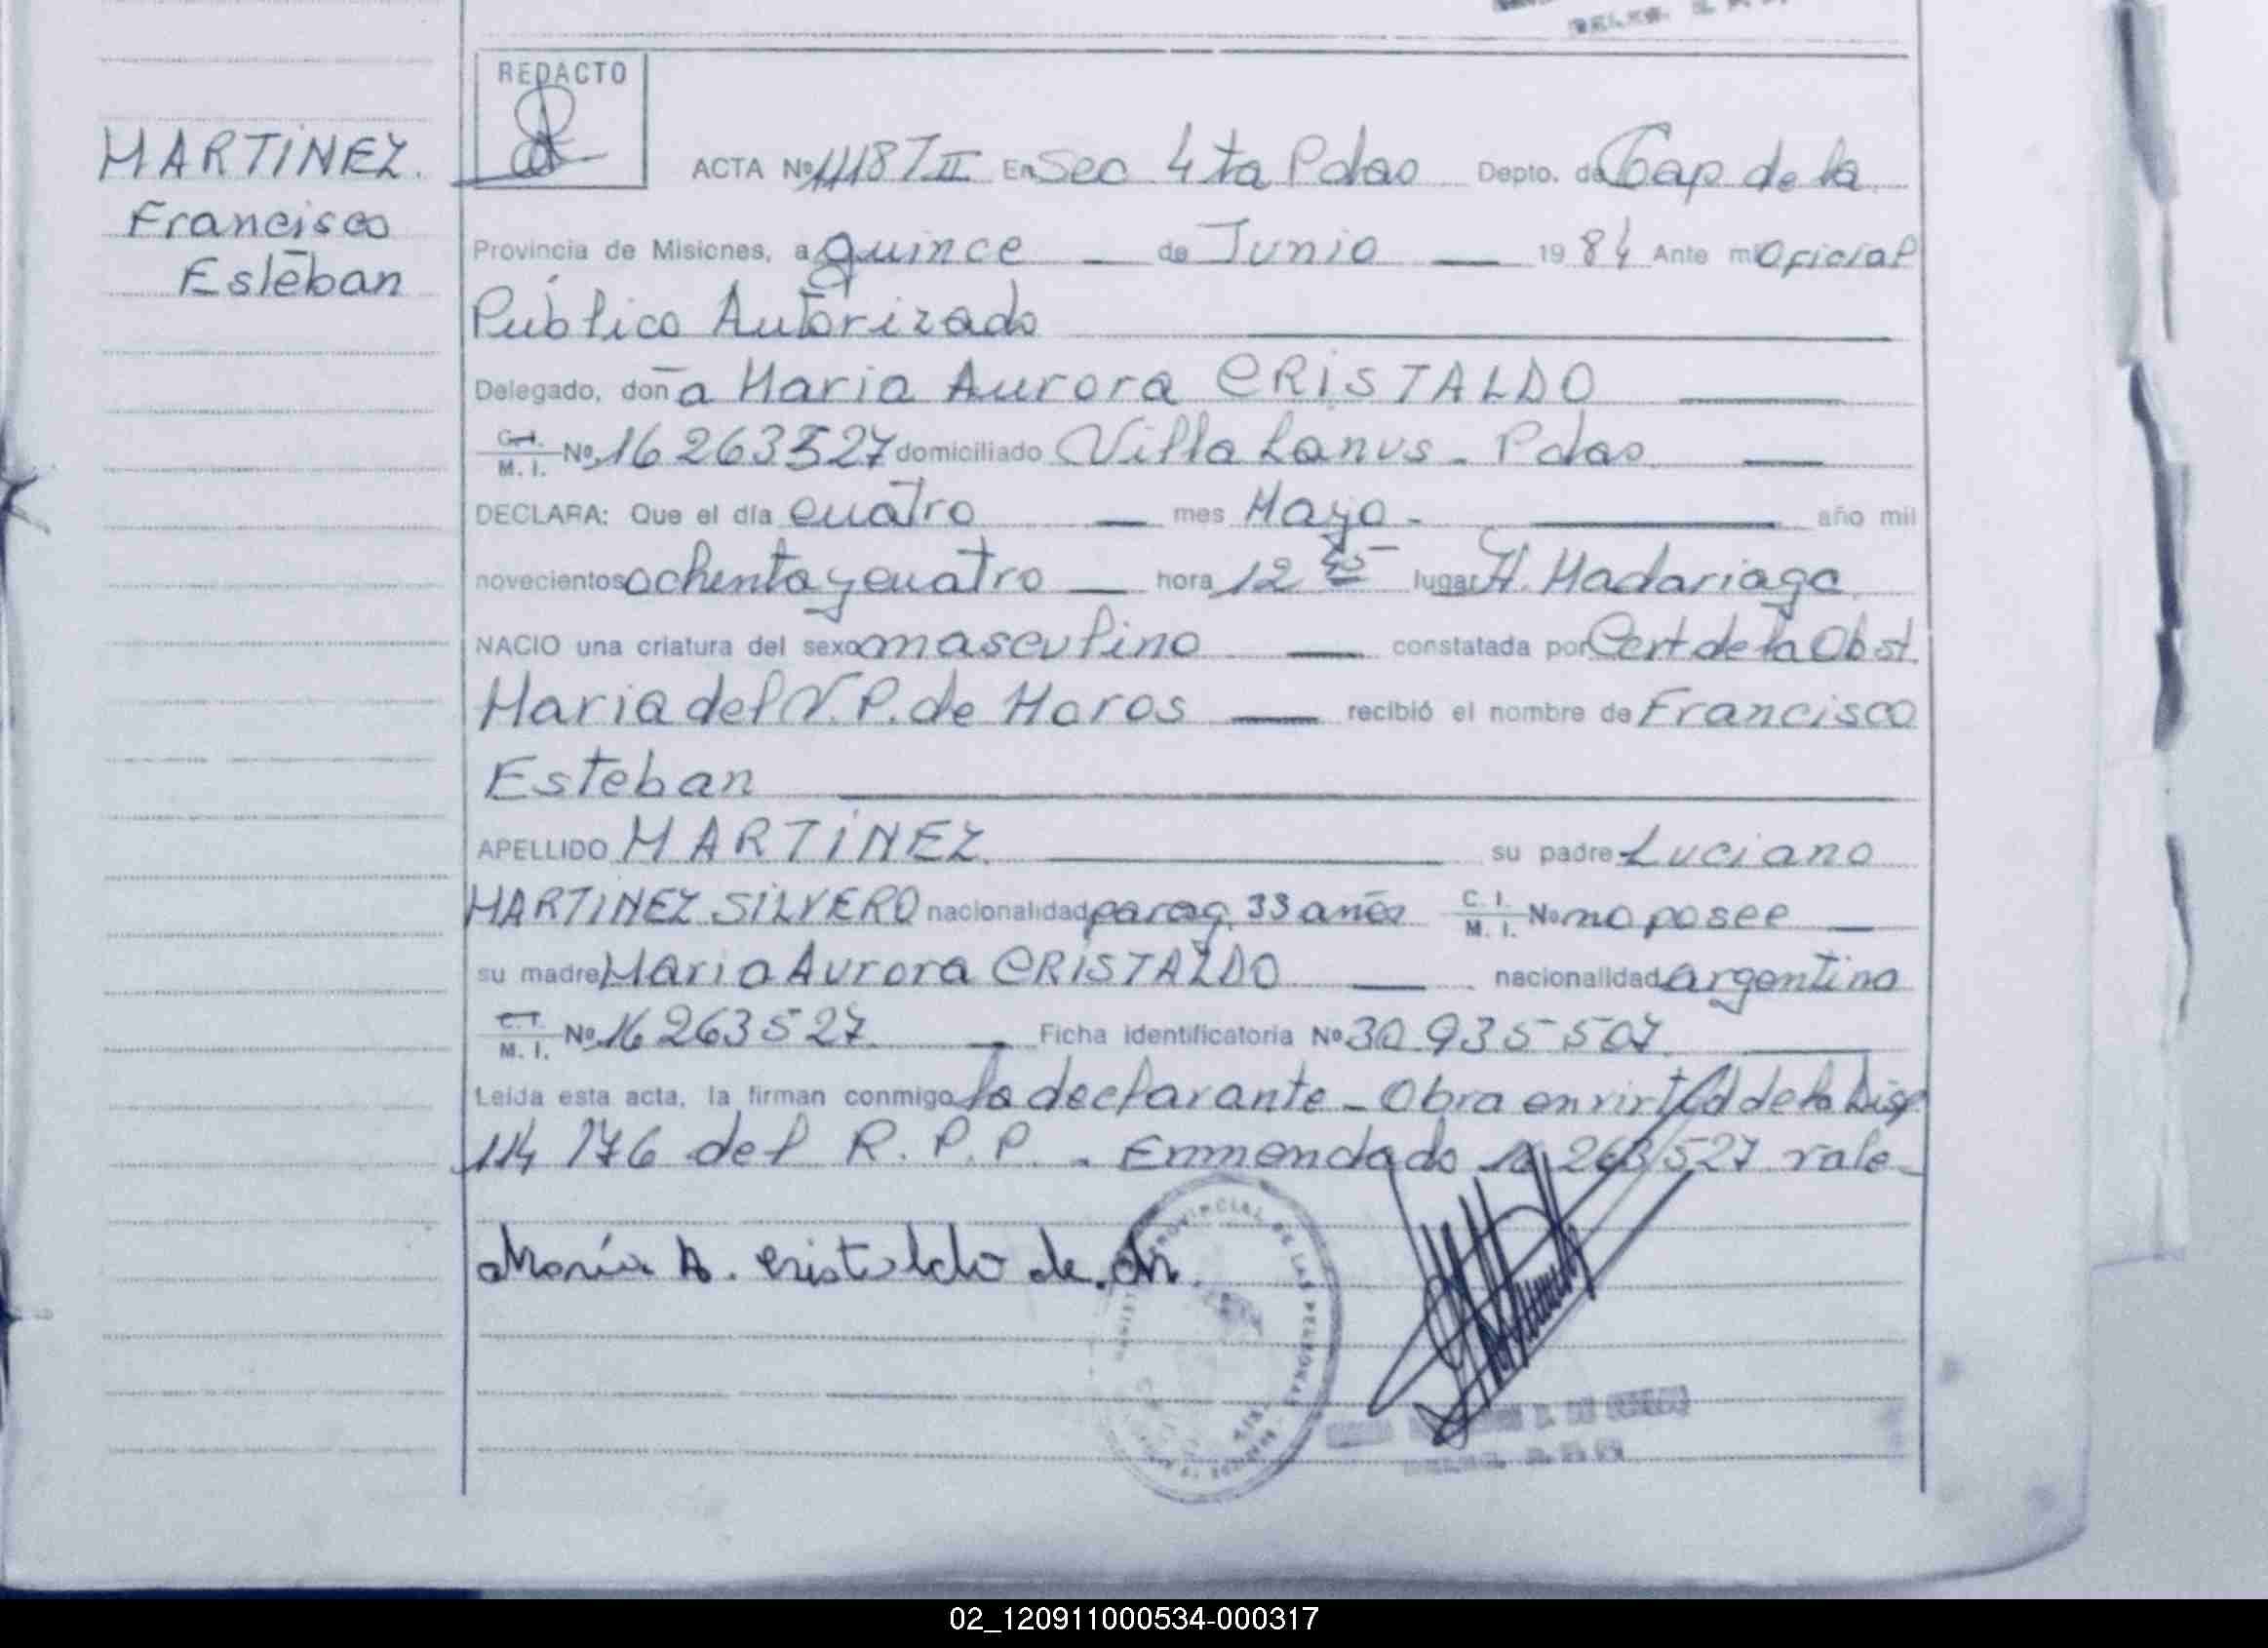 REDACTO
MARTINEZ.
Francisco
Esteban
ACTA Nº 1118 T II En Sec 4ta Pdas Depto. de Cap de la
Provincia de Misiones, a quince de Junio 1984 Ante mi Oficial
Público Autorizado
Delegado, doña Maria Aurora CRISTALDO
C. I. M. I. Nº 16 263527 domiciliado Villa Lanus - Pdas
DECLARA: Que el día cuatro mes Mayo - año mil
novecientos ochenta y cuatro hora 12 45 lugar H. Madariaga
NACIO una criatura del sexo masculino constatada por Cert de la Obst.
Maria del V. P. de Moros recibió el nombre de Francisco
Esteban
APELLIDO MARTINEZ su padre Luciano
MARTINEZ SILVERO nacionalidad parag. 33 años C. I. M. I. Nº no posee
su madre Maria Aurora CRISTALDO nacionalidad argentina
C. I. M. I. Nº 16 263527 Ficha identificatoria Nº 30 935 507
Leída esta acta, la firman conmigo la declarante - Obra en virtud de la Disp
114/76 del R. P. P. - Enmendado 16 263527 vale -
María A. Cristaldo de M
PROVINCIAL DE LAS PERSONAS
02_120911000534-000317